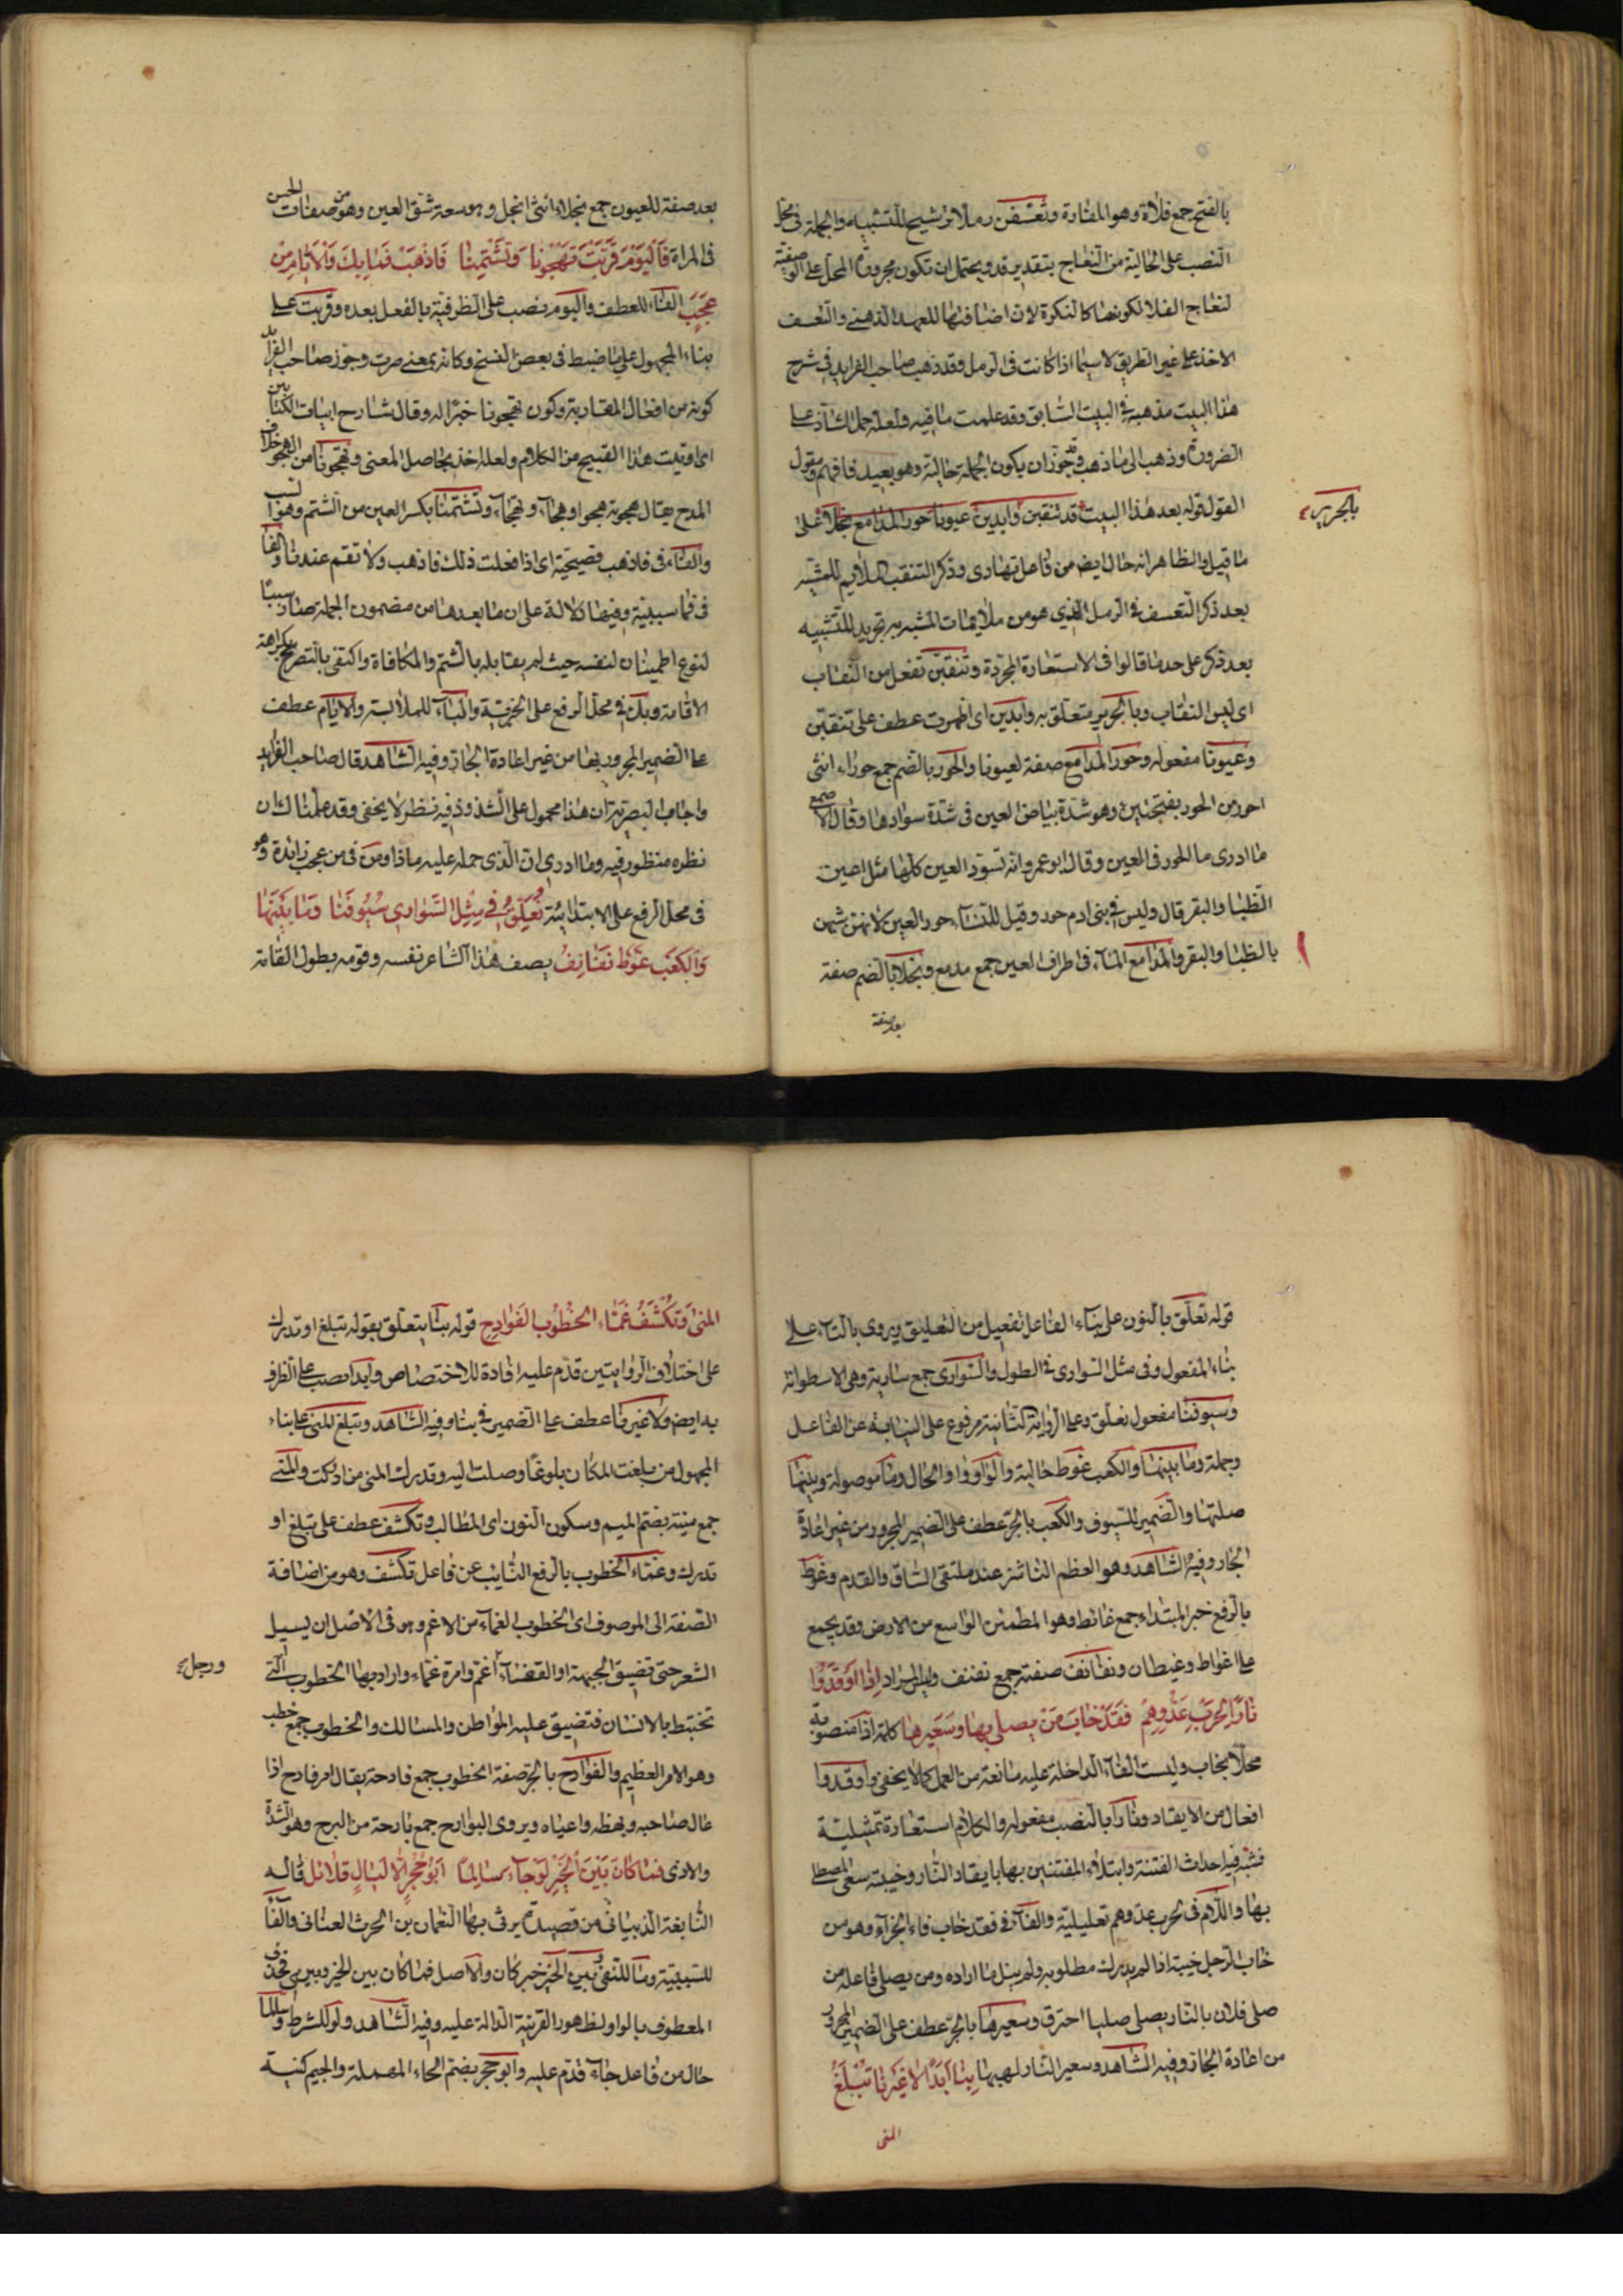 بالفتح جمع فلاة وهو المفازة وتعسفن رملا ترشيح للتشبيه والجملة في محل
النصب على الحالية من النعاج بتقدير قد ويحتمل ان تكون مجرورة المحل على الوصفية
لنعاج الفلا لكونها كالنكرة لان اضافتها للعهد الذهني والتعسف
الاخذ على غير الطريق لا سيما اذا كانت في الرمل وقد ذهب صاحب الفرايد في شرح
هذا البيت مذهبه في البيت السابق وقد علمت ما فيه ولعله حمل الشاذ على
الضرورة وذهب الى ما ذهب وقد جوز ان يكون الجملة حالية وهو بعيد فافهم ومقول
القول قوله بعد هذا البيت قد تنقبن وابدين عيونا حور المدامع نجلا على
بالحرير
ما قيل والظاهر انه حال ايضا من فاعل تهادى وذكر التنقب الملايم للمشبه
بعد ذكر التعسف في الرمل الذي هو من ملايمات المشبه به تجريد للتشبيه
بعد ذكر على حد ما قالوا في الاستعارة المجردة وتنقبن تفعل من النقاب
اي لبس النقاب وبالحرير متعلق به وابدين اي اظهرت عطف على تنقبن
وعيونا مفعوله وحور المدامع صفة لعيونا والحور بالضم جمع حوراء انثى
احور من الحور بفتحتين وهو شدة بياض العين في شدة سوادها وقال الاصمعي
ما ادرى ما الحور في العين وقال ابو عمرو انه تسود العين كلها مثل اعين
الظباء والبقر قال وليس في بنى ادم حور وقيل للنساء حور العين لانهن شبهن
بالظباء والبقر والمدامع المآء في اطراف العين جمع مدمع ونجلا بالضم صفة
بعد صفة
بعد صفة للعيون جمع نجلاء انثى انجل وهو سعة شق العين وهو من صفات الحسن
في المراة فاليوم قربت تهجونا وتشتمنا فاذهب فما بك والايام من
عجب الفاء للعطف واليوم منصب على الظرفية بالفعل بعده وقربت على
بناء المجهول على ما ضبط في بعض النسخ وكانه بمعنى صرت وجوز صاحب الفرايد
كونه من افعال المقاربة وكون تهجونا خبرا له وقال شارح ابيات الكتاب
اي اوتيت هذا القبيح من الكلام ولعله اخذ بحاصل المعنى وتهجونا من الهجو خلاف
المدح يقال هجوته هجوا وهجاء وتهجاء وتشتمنا بكسر العين من الشتم وهو السب
والفاء في فاذهب فصيحية اي اذا فعلت ذلك فاذهب ولا تقم عندنا والفا
في فما سببية وفيها دلالة على ان ما بعدها من مضمون الجملة صار سببا
لنوع اطمينان لنفسه حيث لم يقابله بالشتم والمكافاة واكتفى بالتصريح بكراهة
الاقامة وبك في محل الرفع على الخبرية والباء للملابسة والايام عطف
على الضمير المجرور بها من غير اعادة الجار وفيه الشاهد قال صاحب الفرايد
واجاب البصرية ان هذا محمول على الشذوذ فيه نظر لا يخفى وقد علمنا ك ان
نظره منظور فيه وما ادرى ان الذي حمله عليه ماذا ومن في من عجب زائدة وهو
في محل الرفع على الابتدائية نعلق في مثل السوارى سيوفنا وما بينها
والكعب غوط نفانف يصف هذا الشاعر نفسه وقومه بطول القامة
قوله نعلق بالنون على بناء الفاعل تفعيل من التعليق ويروى بالتاء على
بناء المفعول وفي مثل السوارى في الطول والسوارى جمع سارية وهي الاسطوانة
وسيوفنا مفعول نعلق وعلى الرواية الثانية مرفوع على النيابة عن الفاعل
وجملة وما بينها والكعب غوط حالية والواو واو الحال وما موصولة وبينها
صلتها والضمير للسيوف والكعب بالجر عطف على الضمير المجرور من غير اعادة
الجار وفيه الشاهد وهو العظم الناشز عند ملتقى الساق والقدم وغوط
بالرفع خبر المبتداء جمع غائط وهو المطمئن الواسع من الارض وقد يجمع
على اغواط وغيطان ونفانف صفته جمع نفنف وليس المراد اذا اوقدوا
نارا لحرب عدوهم فقد خاب من يصلى بها وسعيرها كلمة اذا منصوبة
محلا بخاب وليست الفاء الداخلة عليه مانعة من العمل كما لا يخفى واوقدوا
افعال من الايقاد ونارا بالنصب مفعوله والكلام استعارة تمثيلية
فشبه فيه احداث الفتنة وابتلاء المفتتنين بها بايقاد النار وخيبة سعى المصطلى
بها واللام في لحرب عدوهم تعليلية والفاء في فقد خاب فاء الجزاء وهو من
خاب الرجل خيبة اذا لم يدرك مطلوبه ولم ينل ما اراده ومن يصلى فاعله من
صلى فلان بالنار يصلى صليا احترق وسعيرها بالجر عطف على الضمير المجرور
من اعادة الجار وفيه الشاهد وسعير النار لهيبها بنا ابدا لا غيرنا تبلغ
المنى
المنى وتكشف غماء الخطوب الفوادح قوله بنا يتعلق بقوله تبلغ او تدرك
على اختلاف الروايتين قدم عليه افادة للاختصاص وابدا نصب على الظرف
به ايضا ولا غيرنا عطف على الضمير في بنا وفيه الشاهد وتبلغ المنى على بناء
المجهول من بلغت المكان بلوغا وصلت اليه وتدرك المنى من ادركت والمنى
جمع منية بضم الميم وسكون النون اي المطالب وتكشف عطف على تبلغ او
تدرك وغماء الخطوب بالرفع النايب عن فاعل تكشف وهو من اضافة
الصفة الى الموصوف اي الخطوب الغماء من الاغم وهو في الاصل ان يسيل
الشعر حتى تضيق الجبهة او القفا ورجل اغم وامرة غماء واراد بها الخطوب التي
تختبط بالانسان فتضيق عليه المواطن والمسالك والخطوب جمع خطب
وهو الامر العظيم والفوادح بالجر صفة الخطوب جمع فادحة يقال امر فادح اذا
عال صاحبه وبهظه واعياه ويروى البوارح جمع بارحة من البرح وهو الشدة
والاذى فما كان بين الخير لو جاء سالما ابو حجر الا ليال قلائل قاله
النابغة الذبياني من قصيدة يرثى بها النعمان بن الحرث الغسانى والفا
للسببية وما للنفى وبين الخير خبر كان والاصل فما كان بين الخير وبينى فحذف
المعطوف بالواو لظهور القرينة الدالة عليه وفيه الشاهد ولو للشرط وسالما
حال من فاعل جاء قدم عليه وابو حجر بضم الحاء المهملة والجيم كنية